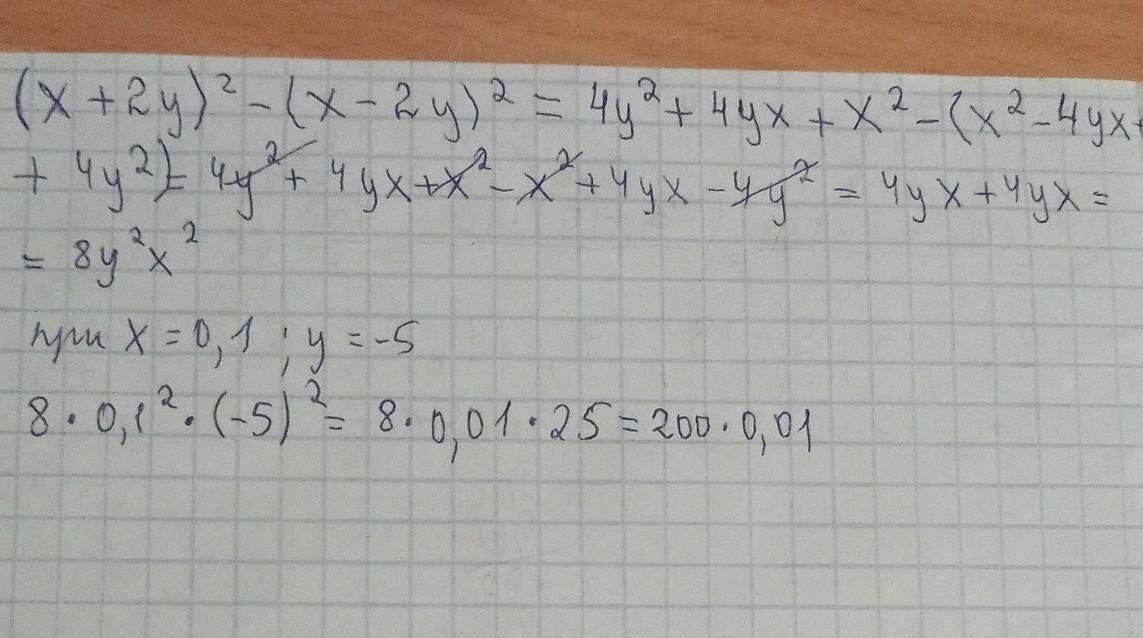 (x + 2y)² - (x - 2y)² = 4y² + 4yx + x² - (x² - 4yx +
+ 4y²) = 4y² + 4yx + x² - x² + 4yx - 4y² = 4yx + 4yx =
= 8y²x²
при x = 0,1 ; y = -5
8 · 0,1² · (-5)² = 8 · 0,01 · 25 = 200 · 0,01